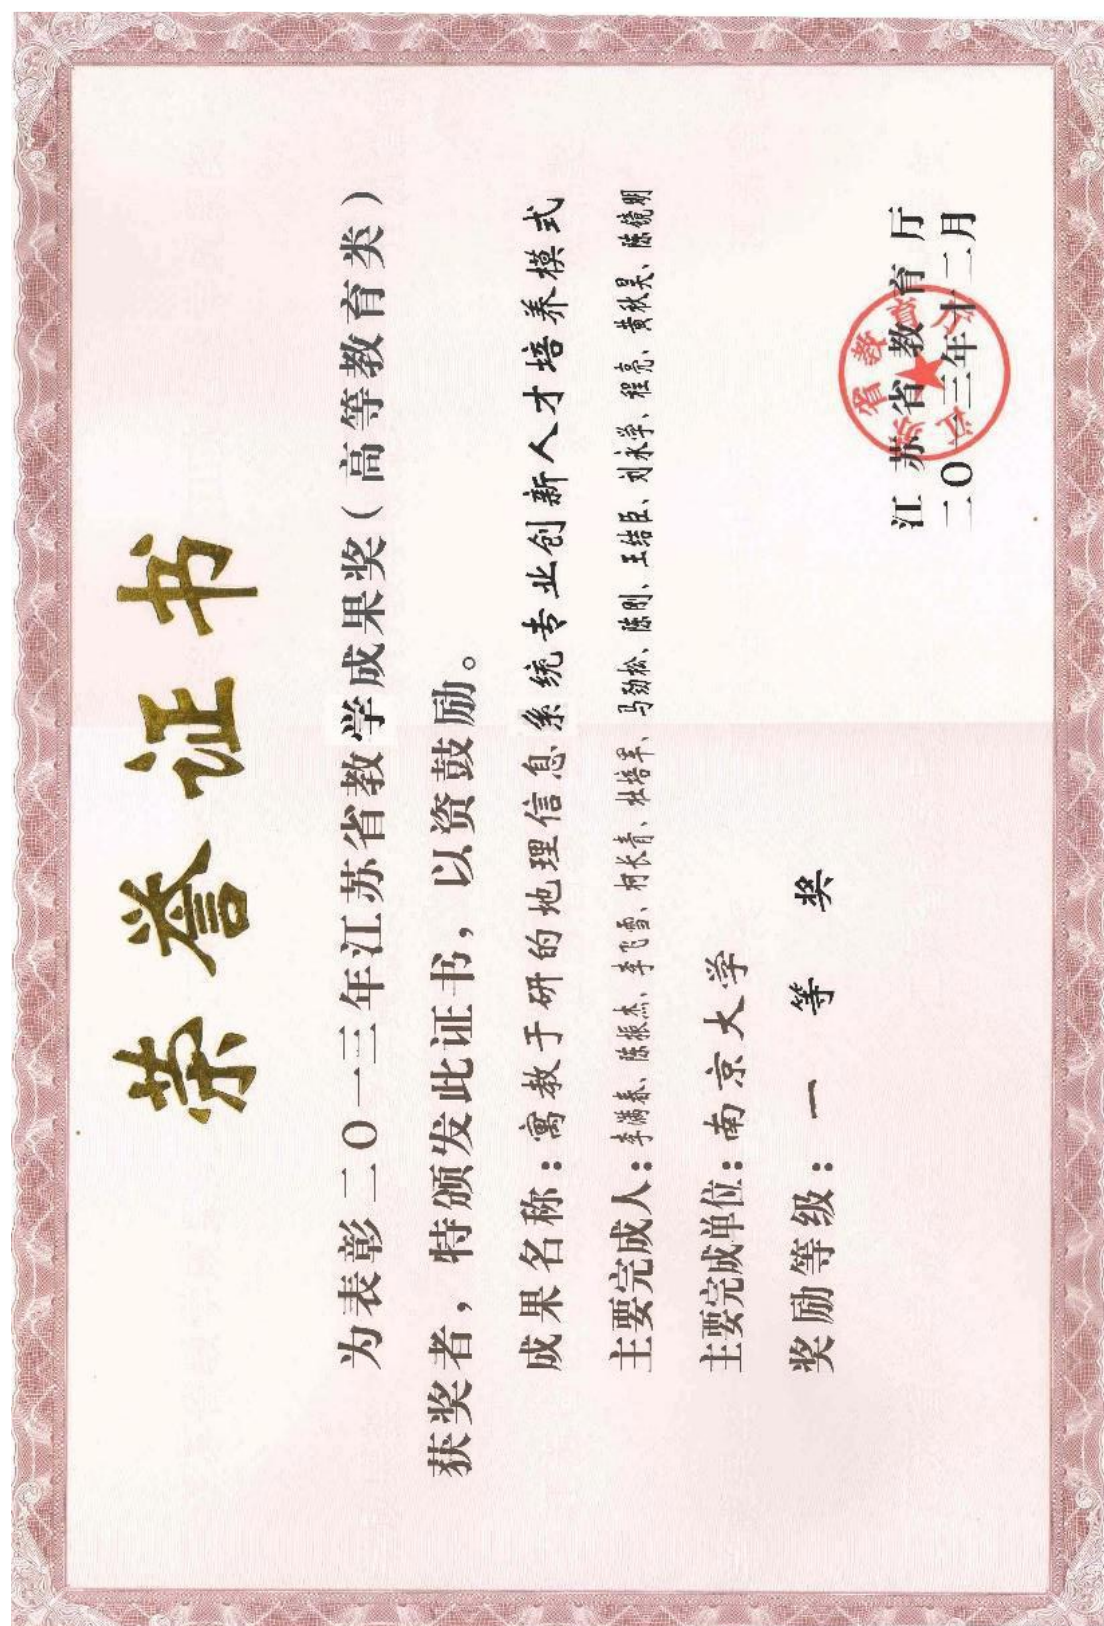 荣誉证书
为表彰二〇一三年江苏省教学成果奖(高等教育类)
获奖者,特颁发此证书,以资鼓励。
成果名称:寓教于研的地理信息系统专业创新人才培养模式
主要完成人:李满春、陈振杰、李飞雪、柯长青、杜培军、马劲松、陈刚、王结臣、刘永学、程亮、黄秋昊、陈镜明
主要完成单位:南京大学
奖励等级:一等奖
江苏省教育厅
二〇一三年十二月
江苏省教育厅